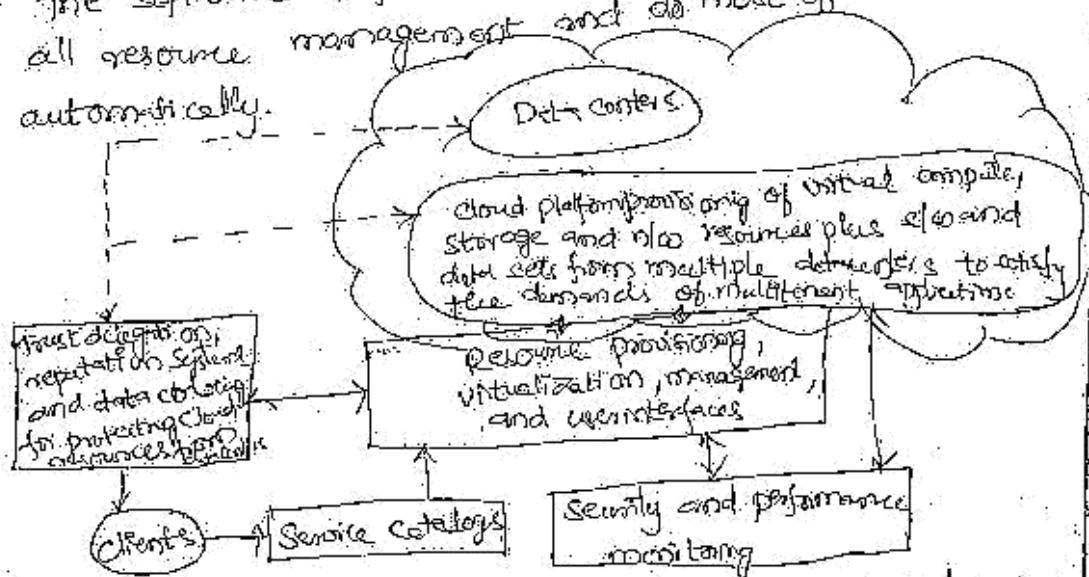 all resource management and do most of
automatically.
Data centers
cloud platform provisionig of virtual compute,
storage and n/w resources plus s/w and
data sets from multiple datacenters to satisfy
the demands of multitenant applications
Trust delegation,
reputation system
and data coloring
for protecting cloud
resources from
Resource provisioning,
virtualization, management,
and user interfaces
clients
Service catalogs
Security and performance
monitoring